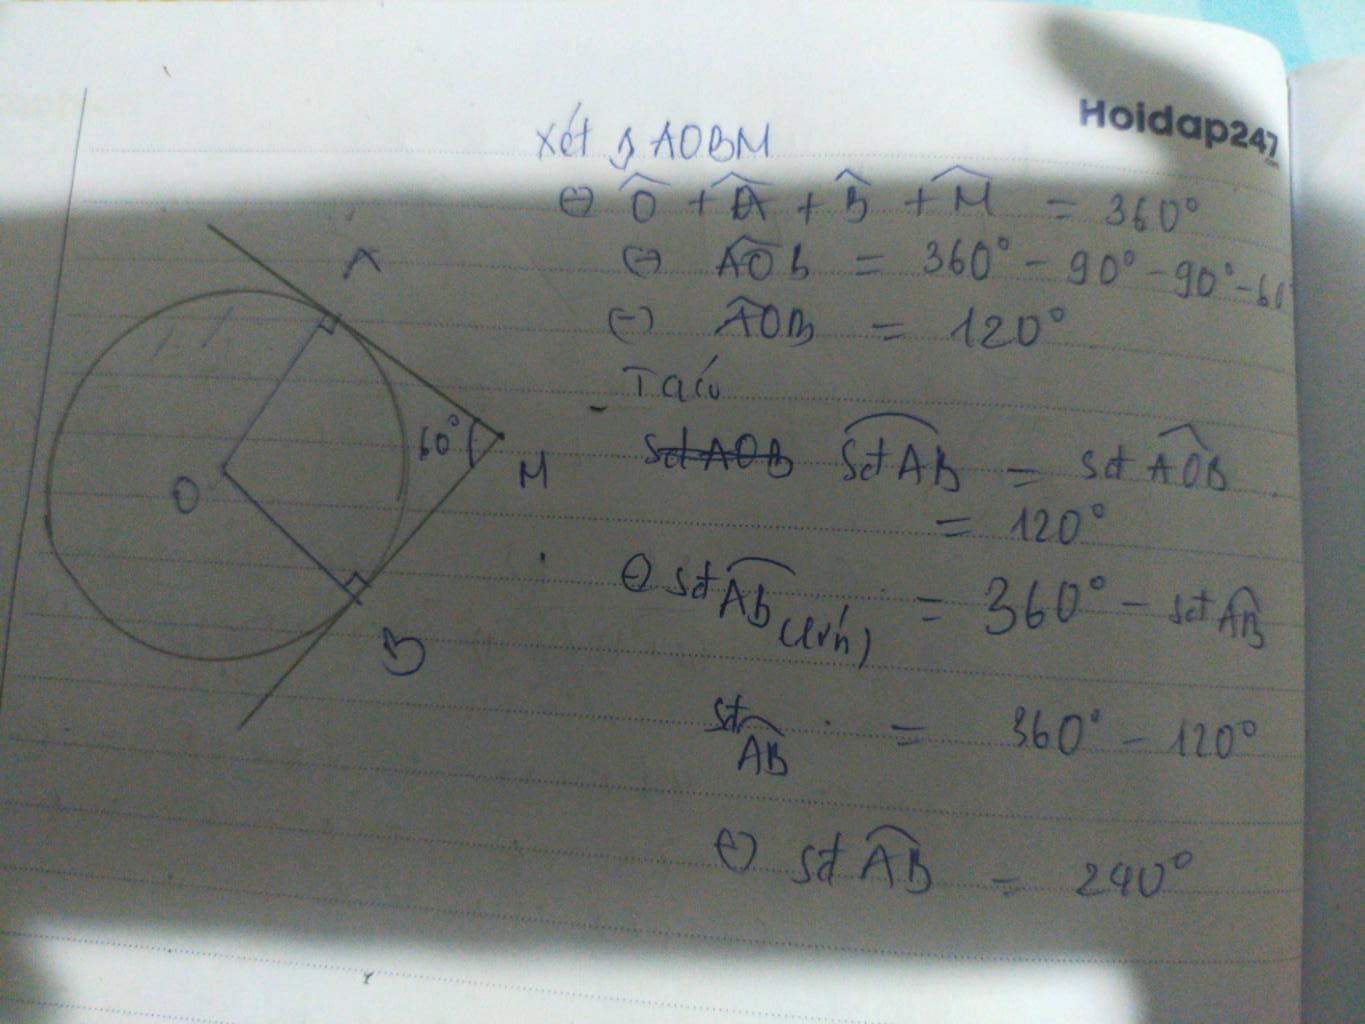 Hoidap247
.com
Xét ◊ AOBM
⇔ Ô + Â + B̂ + M̂ = 360°
⇔ AÔB = 360° - 90° - 90° - 60°
⇔ AÔB = 120°
Ta có
sđ AOB sđ AB = sđ AÔB
= 120°
⇔ sđ AB (lớn) = 360° - sđ AB
sđ AB = 360° - 120°
⇔ sđ AB = 240°
A
60°
M
O
B